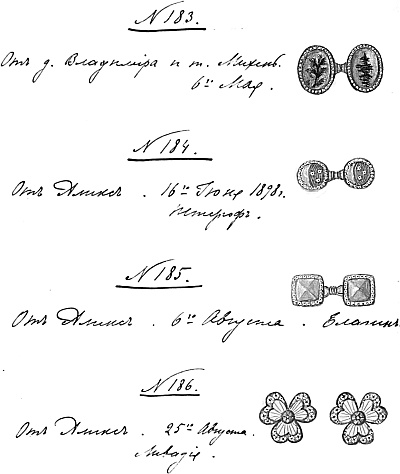 N 183.
Отъ д. Владимiра и т. Михень.
6го Мая.
N 184.
Отъ Аликсъ. 16го Iюня 1898 г.
Петергофъ.
N 185.
Отъ Аликсъ. 6го Августа. Елагинъ
N 186.
Отъ Аликсъ. 25го Августа.
Ливадiя.